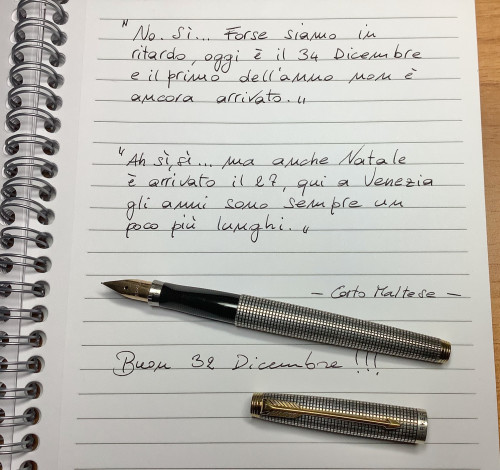 "No. Sì... Forse siamo in
ritardo, oggi è il 34 Dicembre
e il primo dell'anno non è
ancora arrivato."
"Ah sì, sì... ma anche Natale
è arrivato il 27, qui a Venezia
gli anni sono sempre un
poco più lunghi."
- Corto Maltese -
Buon 32 Dicembre!!!